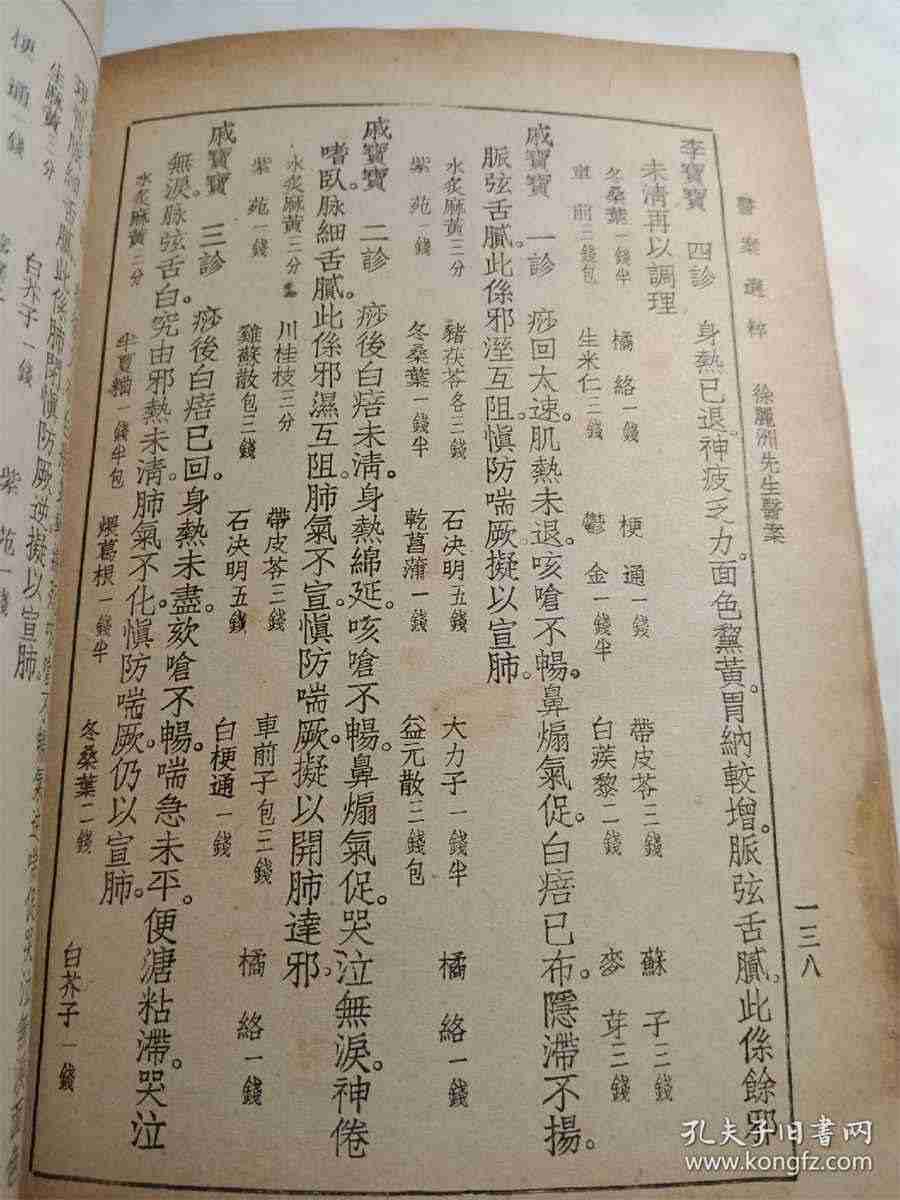 醫案選粹　徐麗洲先生醫案　一三八
李寶寶　四診　身熱已退。神疲乏力。面色黧黃。胃納較增。脈弦舌膩。此係餘邪
未清再以調理
冬桑葉一錢半　橘絡一錢　梗通一錢　帶皮苓三錢　蘇子三錢
車前三錢包　生米仁三錢　鬱金一錢半　白蒺藜二錢　麥芽三錢
戚寶寶　一診　痧回太速。肌熱未退。咳嗆不暢。鼻煽氣促。白㾦已布。隱滯不揚。
脈弦舌膩。此係邪溼互阻。愼防喘厥擬以宣肺。
水炙麻黃三分　豬茯苓各三錢　石決明五錢　大力子一錢半　橘絡一錢
紫苑一錢　冬桑葉一錢半　乾菖蒲一錢　益元散三錢包
戚寶寶　二診　痧後白㾦未淸。身熱綿延。咳嗆不暢。鼻煽氣促。哭泣無淚。神倦
嗜臥。脉細舌膩。此係邪濕互阻。肺氣不宣。愼防喘厥。擬以開肺達邪。
水炙麻黃三分　川桂枝三分　帶皮苓三錢　車前子包三錢　橘絡一錢
紫苑一錢　雞蘇散包三錢　石決明五錢　白梗通一錢
戚寶寶　三診　痧後白㾦已回。身熱未盡。欬嗆不暢。喘急未平。便溏粘滯。哭泣
無淚。脉弦舌白。究由邪熱未淸。肺氣不化。愼防喘厥。仍以宣肺。
水炙麻黃三分　半夏麯一錢半包　煨葛根一錢半　冬桑葉二錢　白芥子一錢
此係肺閉愼防厥逆擬以宣肺。
白芥子一錢　紫苑一錢
便通一錢
孔夫子旧书网
www.kongfz.com